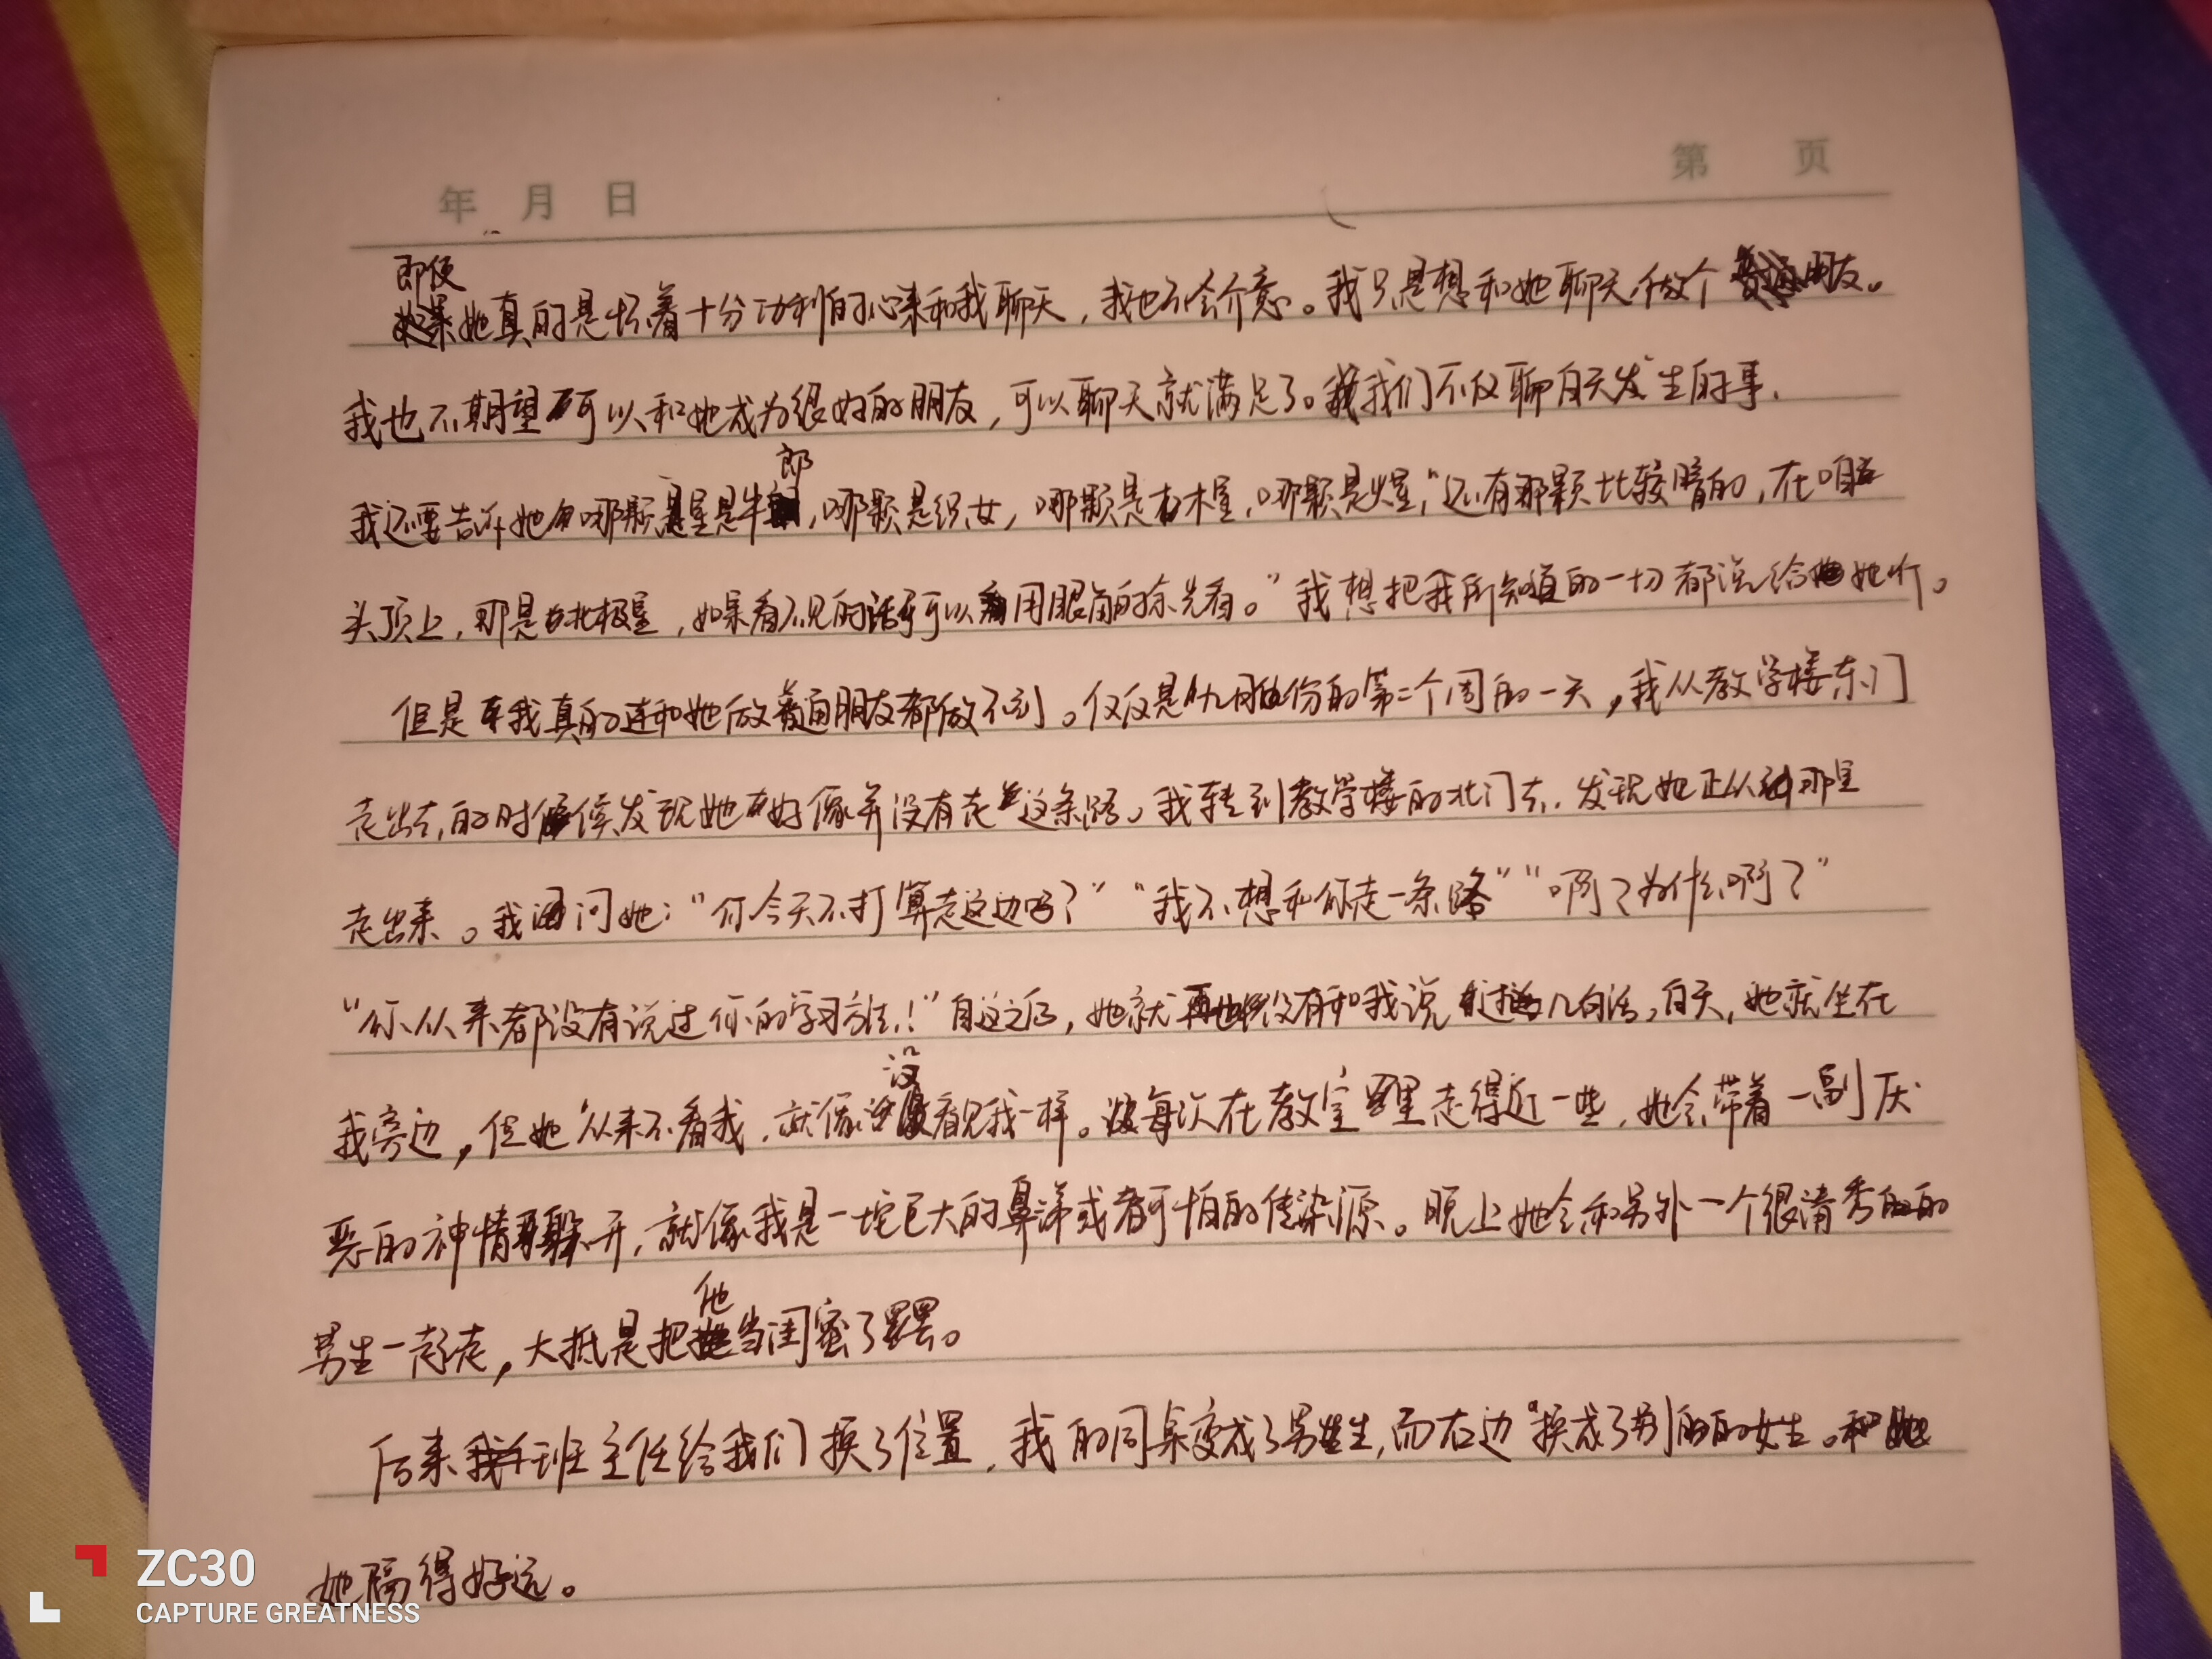 年 月 日
第 页
即便
她真的是怀着十分功利的心来和我聊天，我也不会介意。我只是想和她聊天，做个普通朋友。
我也不期望可以和她成为很好的朋友，可以聊天就满足了。我们不仅聊白天发生的事，
郎
我还要告诉她哪颗星是牛，哪颗是织女，哪颗是木星，哪颗是火星，“还有那颗比较暗的，在咱
头顶上，那是北极星，如果看不见的话可以用眼角的余光看。”我想把我所知道的一切都说给她听。
但是我真的连和她做普通朋友都做不到。仅仅是九月份的第二个周的一天，我从教学楼东门
走出去的时候发现她好像并没有走这条路。我转到教学楼的北门去，发现她正从那里
走出来。我问她：“你今天不打算走这边吗？”“我不想和你走一条路”“啊？为什么啊？”
“你从来都没有说过你的学习方法！”自这之后，她就再也没有和我说过几句话，白天，她就坐在
没
我旁边，但她从来不看我，就像看见我一样。每次在教室里走得近一些，她会带着一副厌
恶的神情躲开，就像我是一坨巨大的鼻涕或者可怕的传染源。晚上她会和另外一个很清秀的
他
男生一起走，大抵是把当闺蜜了罢。
后来班主任给我们换了位置，我的同桌变成了男生，而右边换成了别的女生。和
她隔得好远。
ZC30
CAPTURE GREATNESS